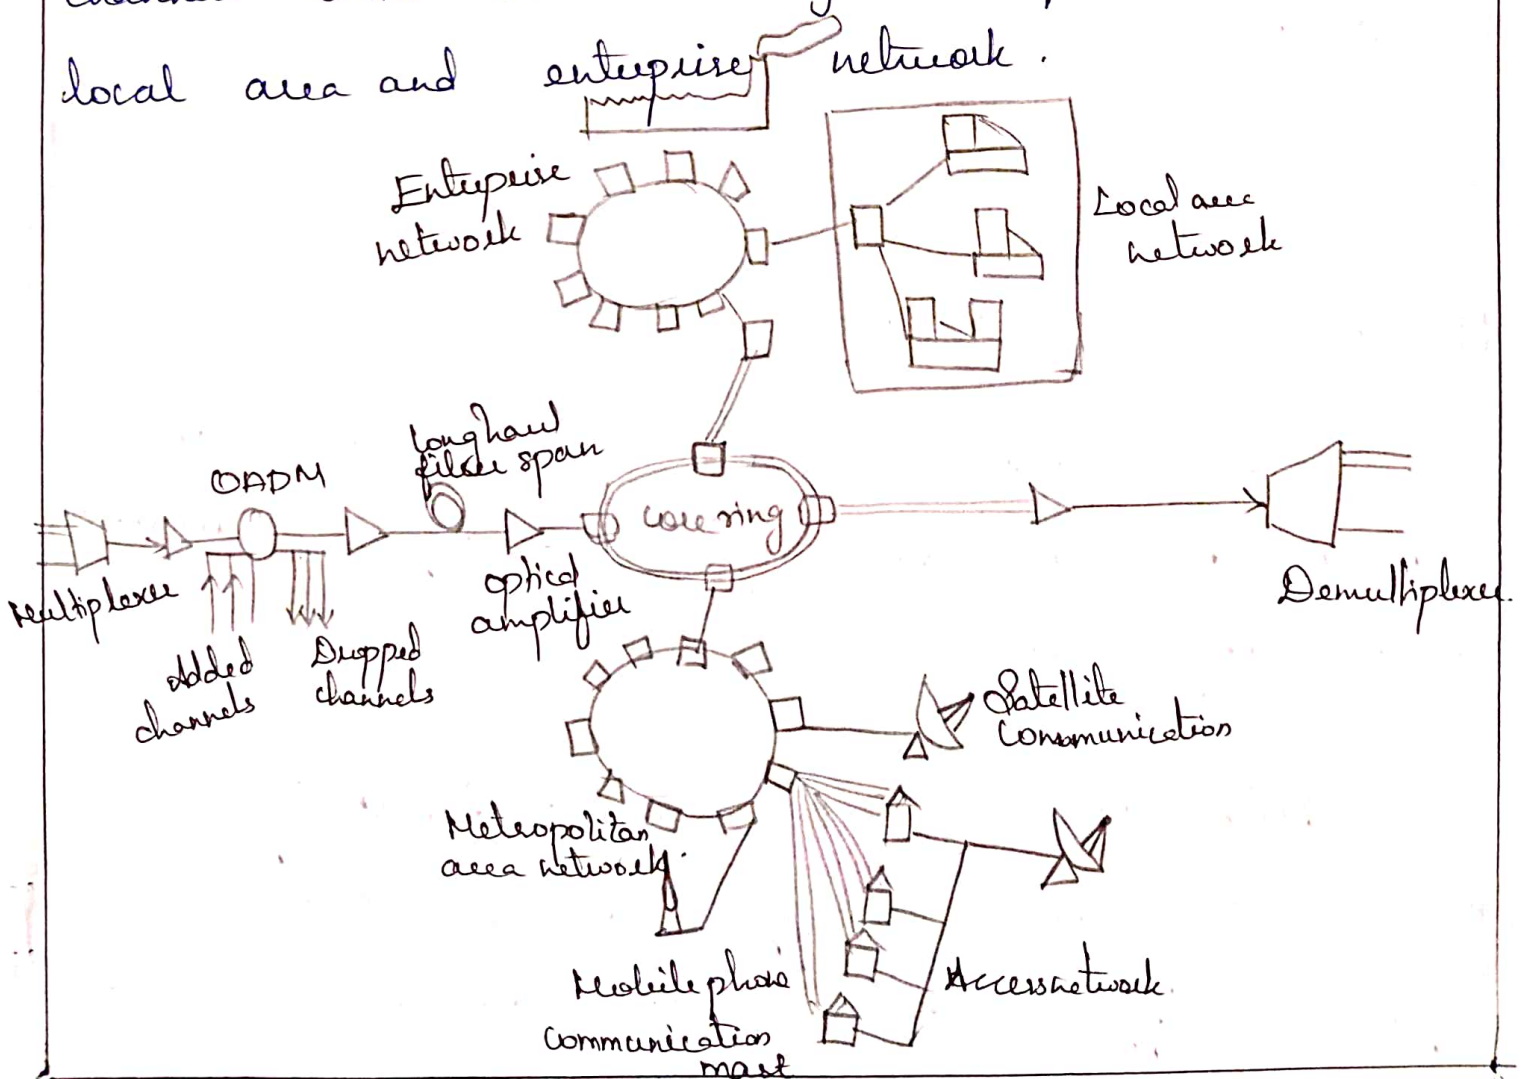 local area and enterprise network.
Enterprise
network
Local area
network
Longhaul
fiber span
OADM
core ring
Multiplexer
optical
amplifier
Demultiplexer.
Added
channels
Dropped
channels
Satellite
Communication
Metropolitan
area network.
Mobile phone
Communication
mast
Access network.